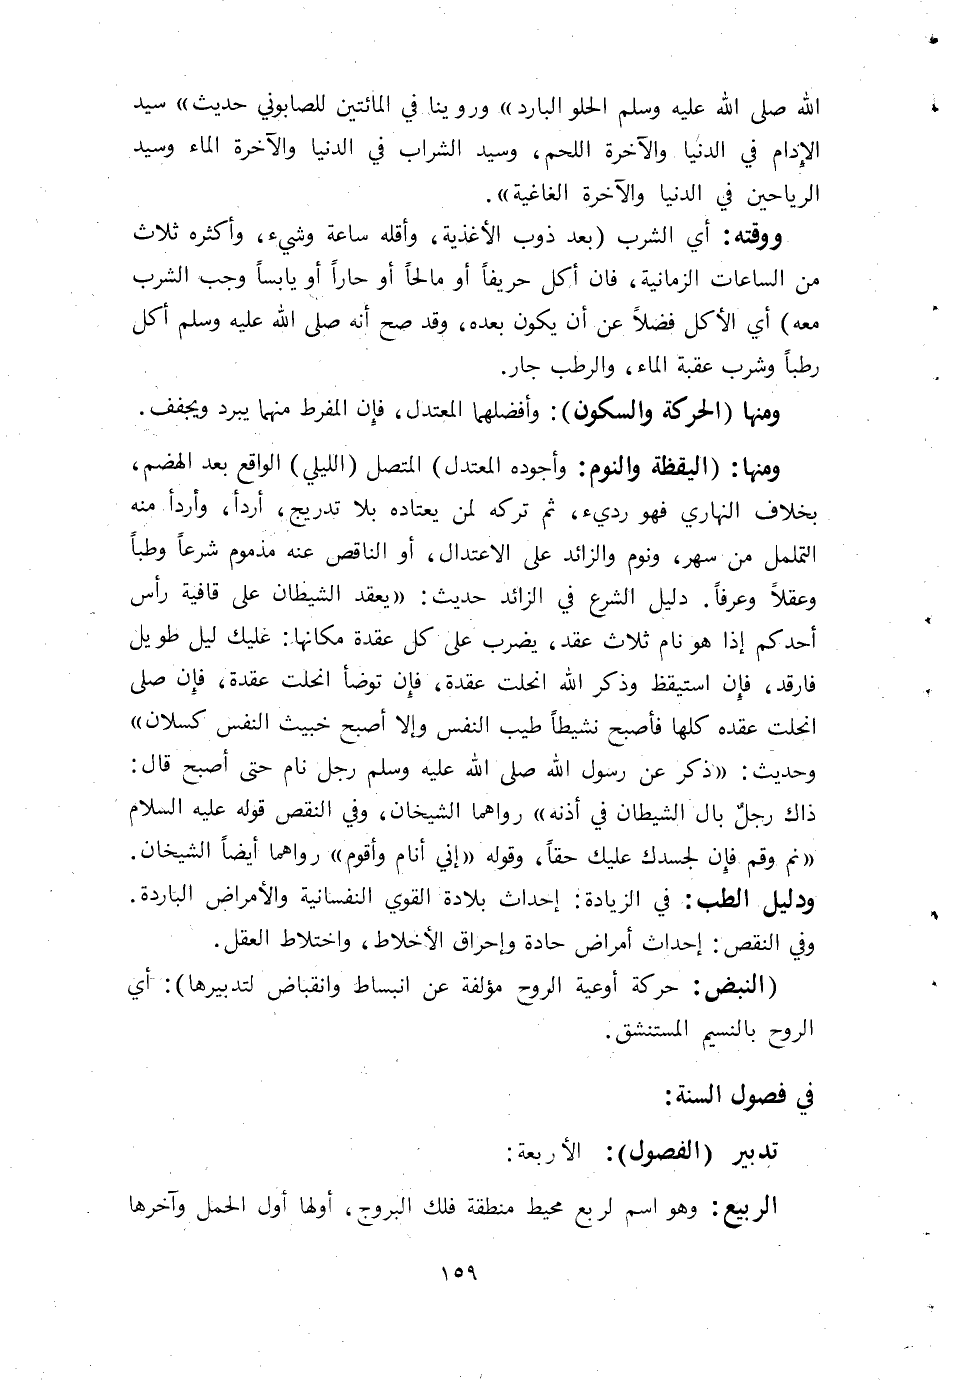 الله صلى الله عليه وسلم الحلو البارد» وروينا في المائتين للصابوني حديث» سيد
الإدام في الدنيا والآخرة اللحم، وسيد الشراب في الدنيا والآخرة الماء وسيد
الرياحين في الدنيا والآخرة الغاغية».
ووقته: أي الشرب (بعد ذوب الأغذية، وأقله ساعة وشيء، وأكثره ثلاث
من الساعات الزمانية، فان أكل حريفاً أو مالحاً أو حاراً أو يابساً وجب الشرب
معه) أي الأكل فضلاً عن أن يكون بعده، وقد صح أنه صلى الله عليه وسلم أكل
رطباً وشرب عقبة الماء، والرطب جار.
ومنها (الحركة والسكون): وأفضلهما المعتدل، فإن المفرط منهما يبرد ويجفف.
ومنها: (اليقظة والنوم: وأجوده المعتدل) المتصل (الليلي) الواقع بعد الهضم،
بخلاف النهاري فهو رديء، ثم تركه لمن يعتاده بلا تدريج، أردأ، وأردأ منه
التململ من سهر، ونوم والزائد على الاعتدال، أو الناقص عنه مذموم شرعاً وطباً
وعقلاً وعرفاً. دليل الشرع في الزائد حديث: «يعقد الشيطان على قافية رأس
أحدكم إذا هو نام ثلاث عقد، يضرب على كل عقدة مكانها: عليك ليل طويل
فارقد، فإن استيقظ وذكر الله انحلت عقدة، فإن توضأ انحلت عقدة، فإن صلى
انحلت عقده كلها فأصبح نشيطاً طيب النفس وإلا أصبح خبيث النفس كسلان»
وحديث: «ذكر عن رسول الله صلى الله عليه وسلم رجل نام حتى أصبح قال:
ذاك رجلٌ بال الشيطان في أذنه» رواهما الشيخان، وفي النقص قوله عليه السلام
«نم وقم فإن لجسدك عليك حقاً، وقوله «إني أنام وأقوم» رواهما أيضاً الشيخان.
ودليل الطب: في الزيادة: إحداث بلادة القوي النفسانية والأمراض الباردة.
وفي النقص: إحداث أمراض حادة وإحراق الأخلاط، واختلاط العقل.
(النبض: حركة أوعية الروح مؤلفة عن انبساط وانقباض لتدبيرها): أي
الروح بالنسيم المستنشق.
في فصول السنة:
تدبير (الفصول): الأربعة:
الربيع: وهو اسم لربع محيط منطقة فلك البروج، أولها أول الحمل وآخرها
١٥٩